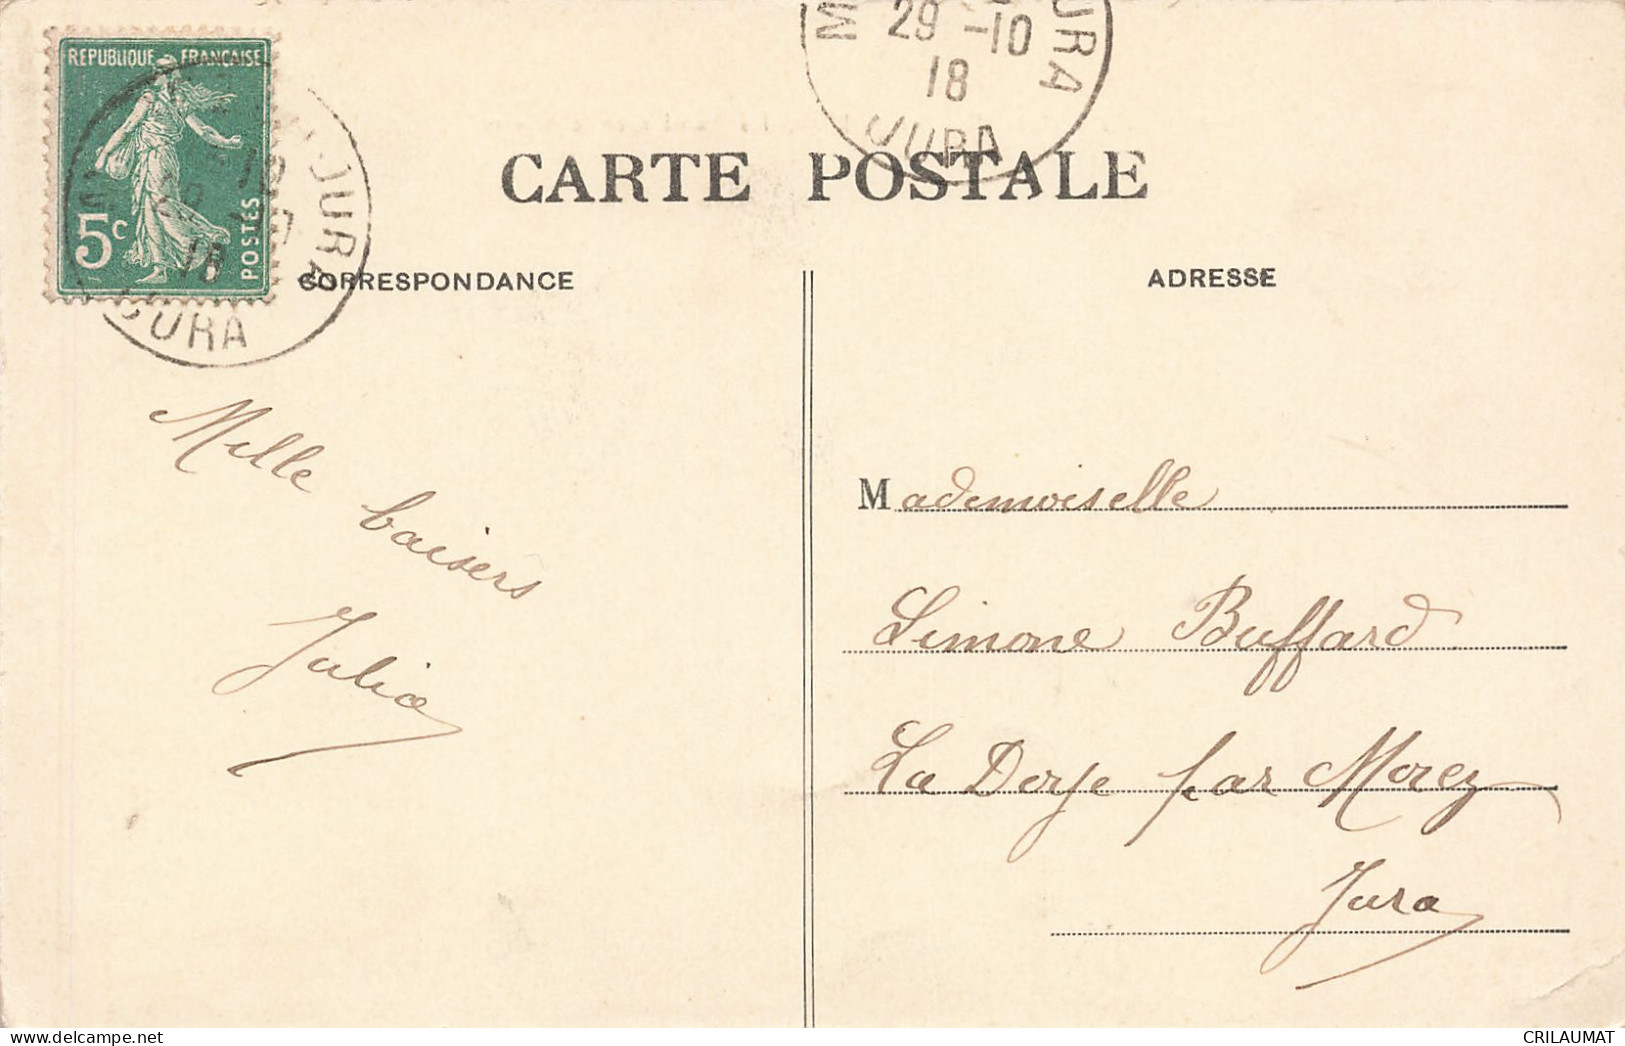 REPUBLIQUE FRANCAISE
5c
POSTES
18
JURA
29-10
18
JURA
CARTE POSTALE
CORRESPONDANCE
ADRESSE
Mille baisers
Julia
Mademoiselle
Simone Buffard
La Doye par Morez
Jura
CRILAUMAT